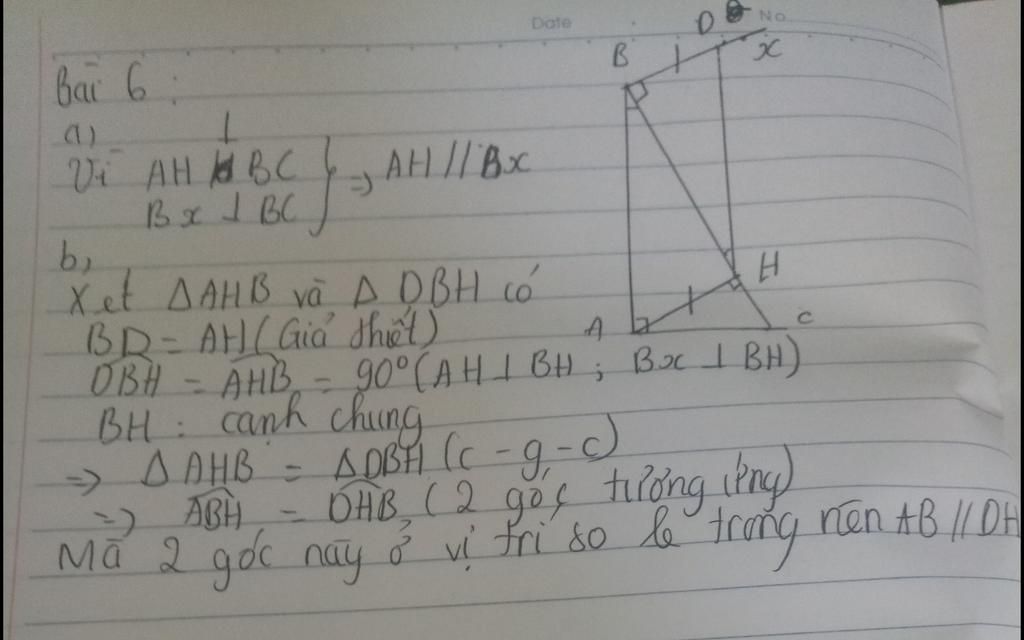 Date No
B D x
Bài 6 :
a)
Vì AH ⊥ BC } => AH // Bx
Bx ⊥ BC
b,
Xét ΔAHB và Δ DBH có
BD = AH (Giả thiết)
DBH = AHB = 90° (AH ⊥ BH ; Bx ⊥ BH)
BH : cạnh chung
=> Δ AHB = ΔDBH (c - g - c)
=> ABH = DHB (2 góc tương ứng)
Mà 2 góc này ở vị trí so le trong nên AB // DH
H
A C